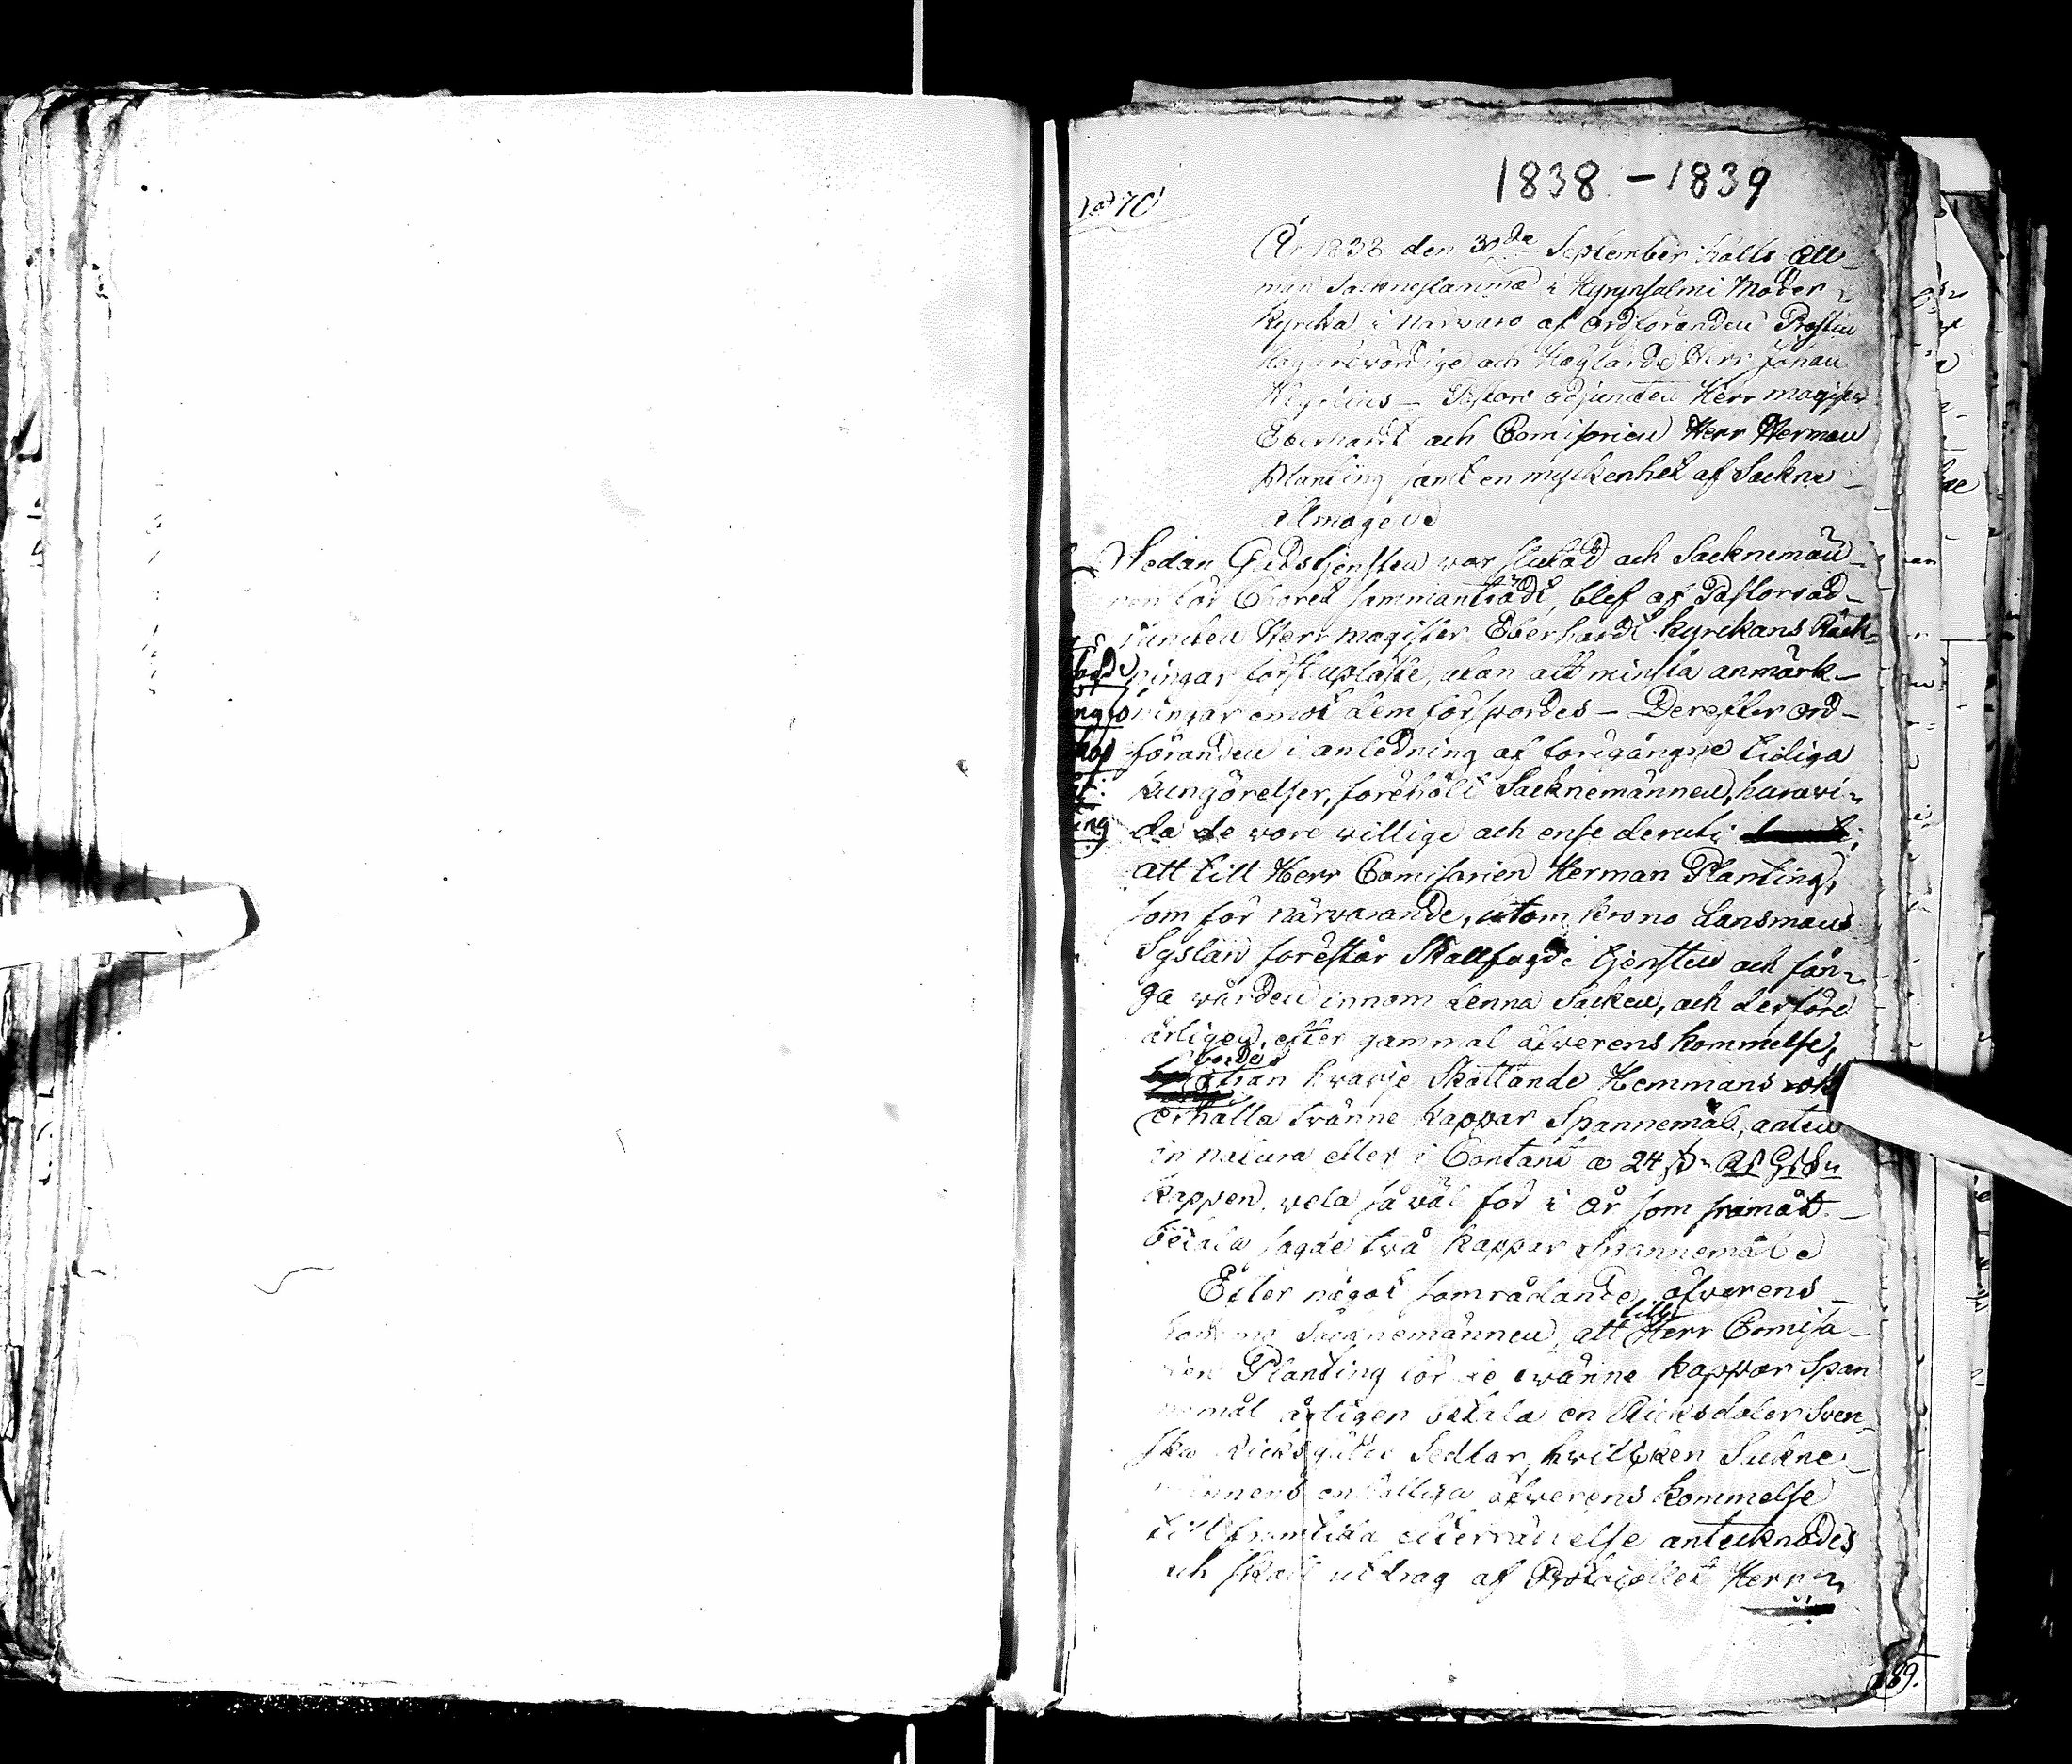 1838 - 1839
År 1838 den 30de September hölls all-
män Socknestämma i Hyrynsalmi Moder
kyrcka i närvaro af ordföranden Prosten
Högärevördige och Höglärde Herr Johan
Pastors adjuncten Herr magister
Eberhardt och Comisarien Herr Herman
Planting samt en myckenhet af Sockne-
allmogen
Sedan Gudstjensten var slutad och Socknemän-
nen för Choret sammanträdt, blef af Pastorsad-
juncten Herr magister Eberhardt kyrckans Räck-
ningar först upläste, utan att minsta anmärk-
ningar emot dem förspordes - Derefter ord-
föranden i anledning af föregångne tidiga
kungörelser, förehölt Socknemännen, huruvi-
da de vore willige och ense deruti
att till Herr Comisarien Herman Planting,
som för närvarande, utom krono Länsmans
Sysslan förestår Skallfogde tjensten och fån-
ge vården innom denna Socken, och derföre
årligen, efter gammal öfwerens kommelse,
borde
från hvarje Skattande Hemmans rök
erhålla tvänne kappar Spannemål, anten
in natura eller i Contant a 24 s. RGS.
kappen, vela så väl för i år som framåt
betala sagde två kappar Spannemål
Efter något samrådande, öfverens-
kommo Socknemännen, att till Herr Comisa-
rien Planting för de tvänne kappar Span
nemål årligen betala en Ricksdaler Sven-
ska Ricksgälds Sedlar, hvillcken Sockne-
männens enhälliga öfverens kommelse
till framtida efterrättelse antecknades
och skall utdrag af Protocollet Herr
189.